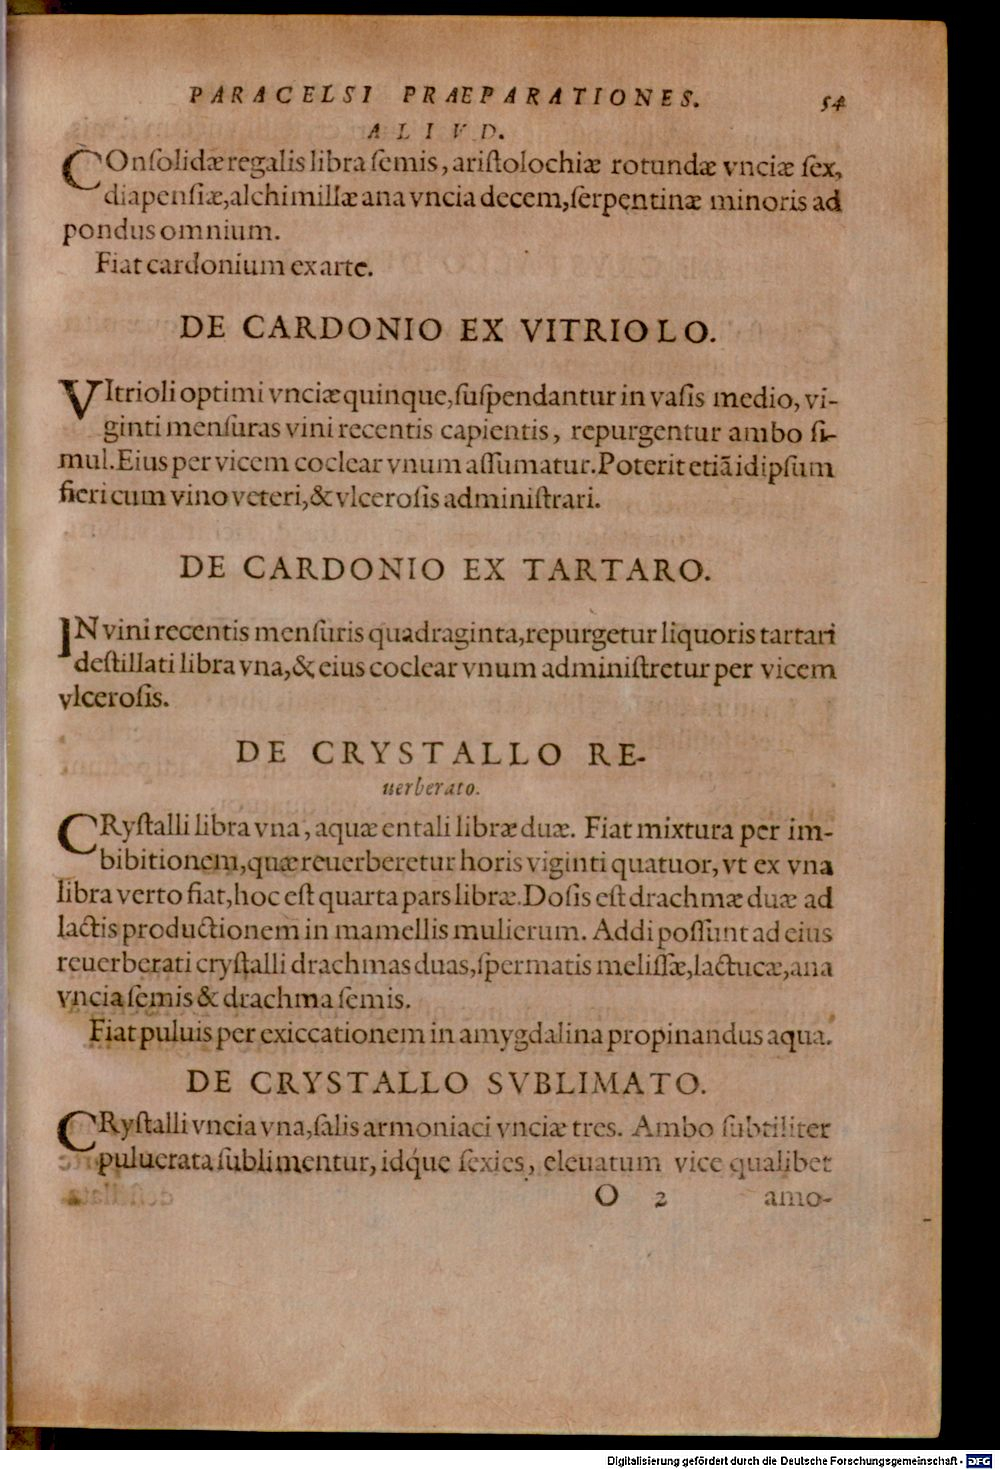 PARACELSI PRÆPARATIONES. 54
ALIVD.
COnſolidæ regalis libra ſemis, ariſtolochiæ rotundæ vnciæ ſex,
diapenſiæ, alchimillæ ana vncia decem, ſerpentinæ minoris ad
pondus omnium.
Fiat cardonium ex arte.
DE CARDONIO EX VITRIOLO.
VItrioli optimi vnciæ quinque, ſuſpendantur in vaſis medio, vi-
ginti menſuras vini recentis capientis, repurgentur ambo ſi-
mul. Eius per vicem coclear vnum aſſumatur. Poterit etiã idipſum
fieri cum vino veteri, & vlceroſis adminiſtrari.
DE CARDONIO EX TARTARO.
IN vini recentis menſuris quadraginta, repurgetur liquoris tartari
deſtillati libra vna, & eius coclear vnum adminiſtretur per vicem
vlceroſis.
DE CRYSTALLO RE-
uerberato.
CRyſtalli libra vna, aquæ entali libræ duæ. Fiat mixtura per im-
bibitionem, quæ reuerberetur horis viginti quatuor, vt ex vna
libra verto fiat, hoc eſt quarta pars libræ. Doſis eſt drachmæ duæ ad
lactis productionem in mamellis mulierum. Addi poſſunt ad eius
reuerberati cryſtalli drachmas duas, ſpermatis meliſſæ, lactucæ, ana
vncia ſemis & drachma ſemis.
Fiat puluis per exiccationem in amygdalina propinandus aqua.
DE CRYSTALLO SVBLIMATO.
CRyſtalli vncia vna, ſalis armoniaci vnciæ tres. Ambo ſubtiliter
puluerata ſublimentur, idq́ue ſexies, eleuatum vice qualibet
O 2 amo-
Digitalisierung gefördert durch die Deutsche Forschungsgemeinschaft - DFG